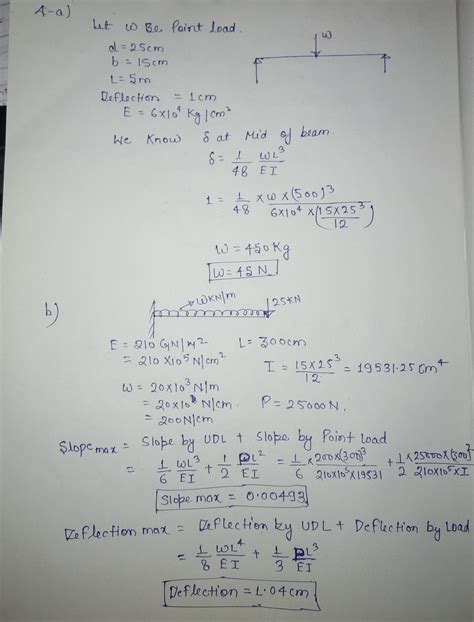 4-a)
Let W Be Point load.
W
d = 25cm
b = 15cm
L = 5m
Deflection = 1cm
E = 6×10⁴ Kg/cm²
We Know δ at Mid of beam.
δ = 1/48 WL³/EI
1 = 1/48 × W×(500)³/6×10⁴×(15×25³/12)
W = 450Kg
W = 45 N
b)
WKN/m
25KN
E = 210 GN/m² L = 300cm
= 210 × 10⁵ N/cm² I = 15×25³/12 = 19531.25 cm⁴
W = 20×10³ N/m
= 20×10 N/cm. P = 25000N.
= 200N/cm
Slope max = Slope by UDL + Slope by Point Load
= 1/6 WL³/EI + 1/2 PL²/EI = 1/6 × 200×(300)³/210×10⁵×19531 + 1/2 × 25000×(300)²/210×10⁵×I
Slope max = 0.00493
Deflection max = Deflection by UDL + Deflection by Load
= 1/8 WL⁴/EI + 1/3 PL³/EI
Deflection = 1.04cm